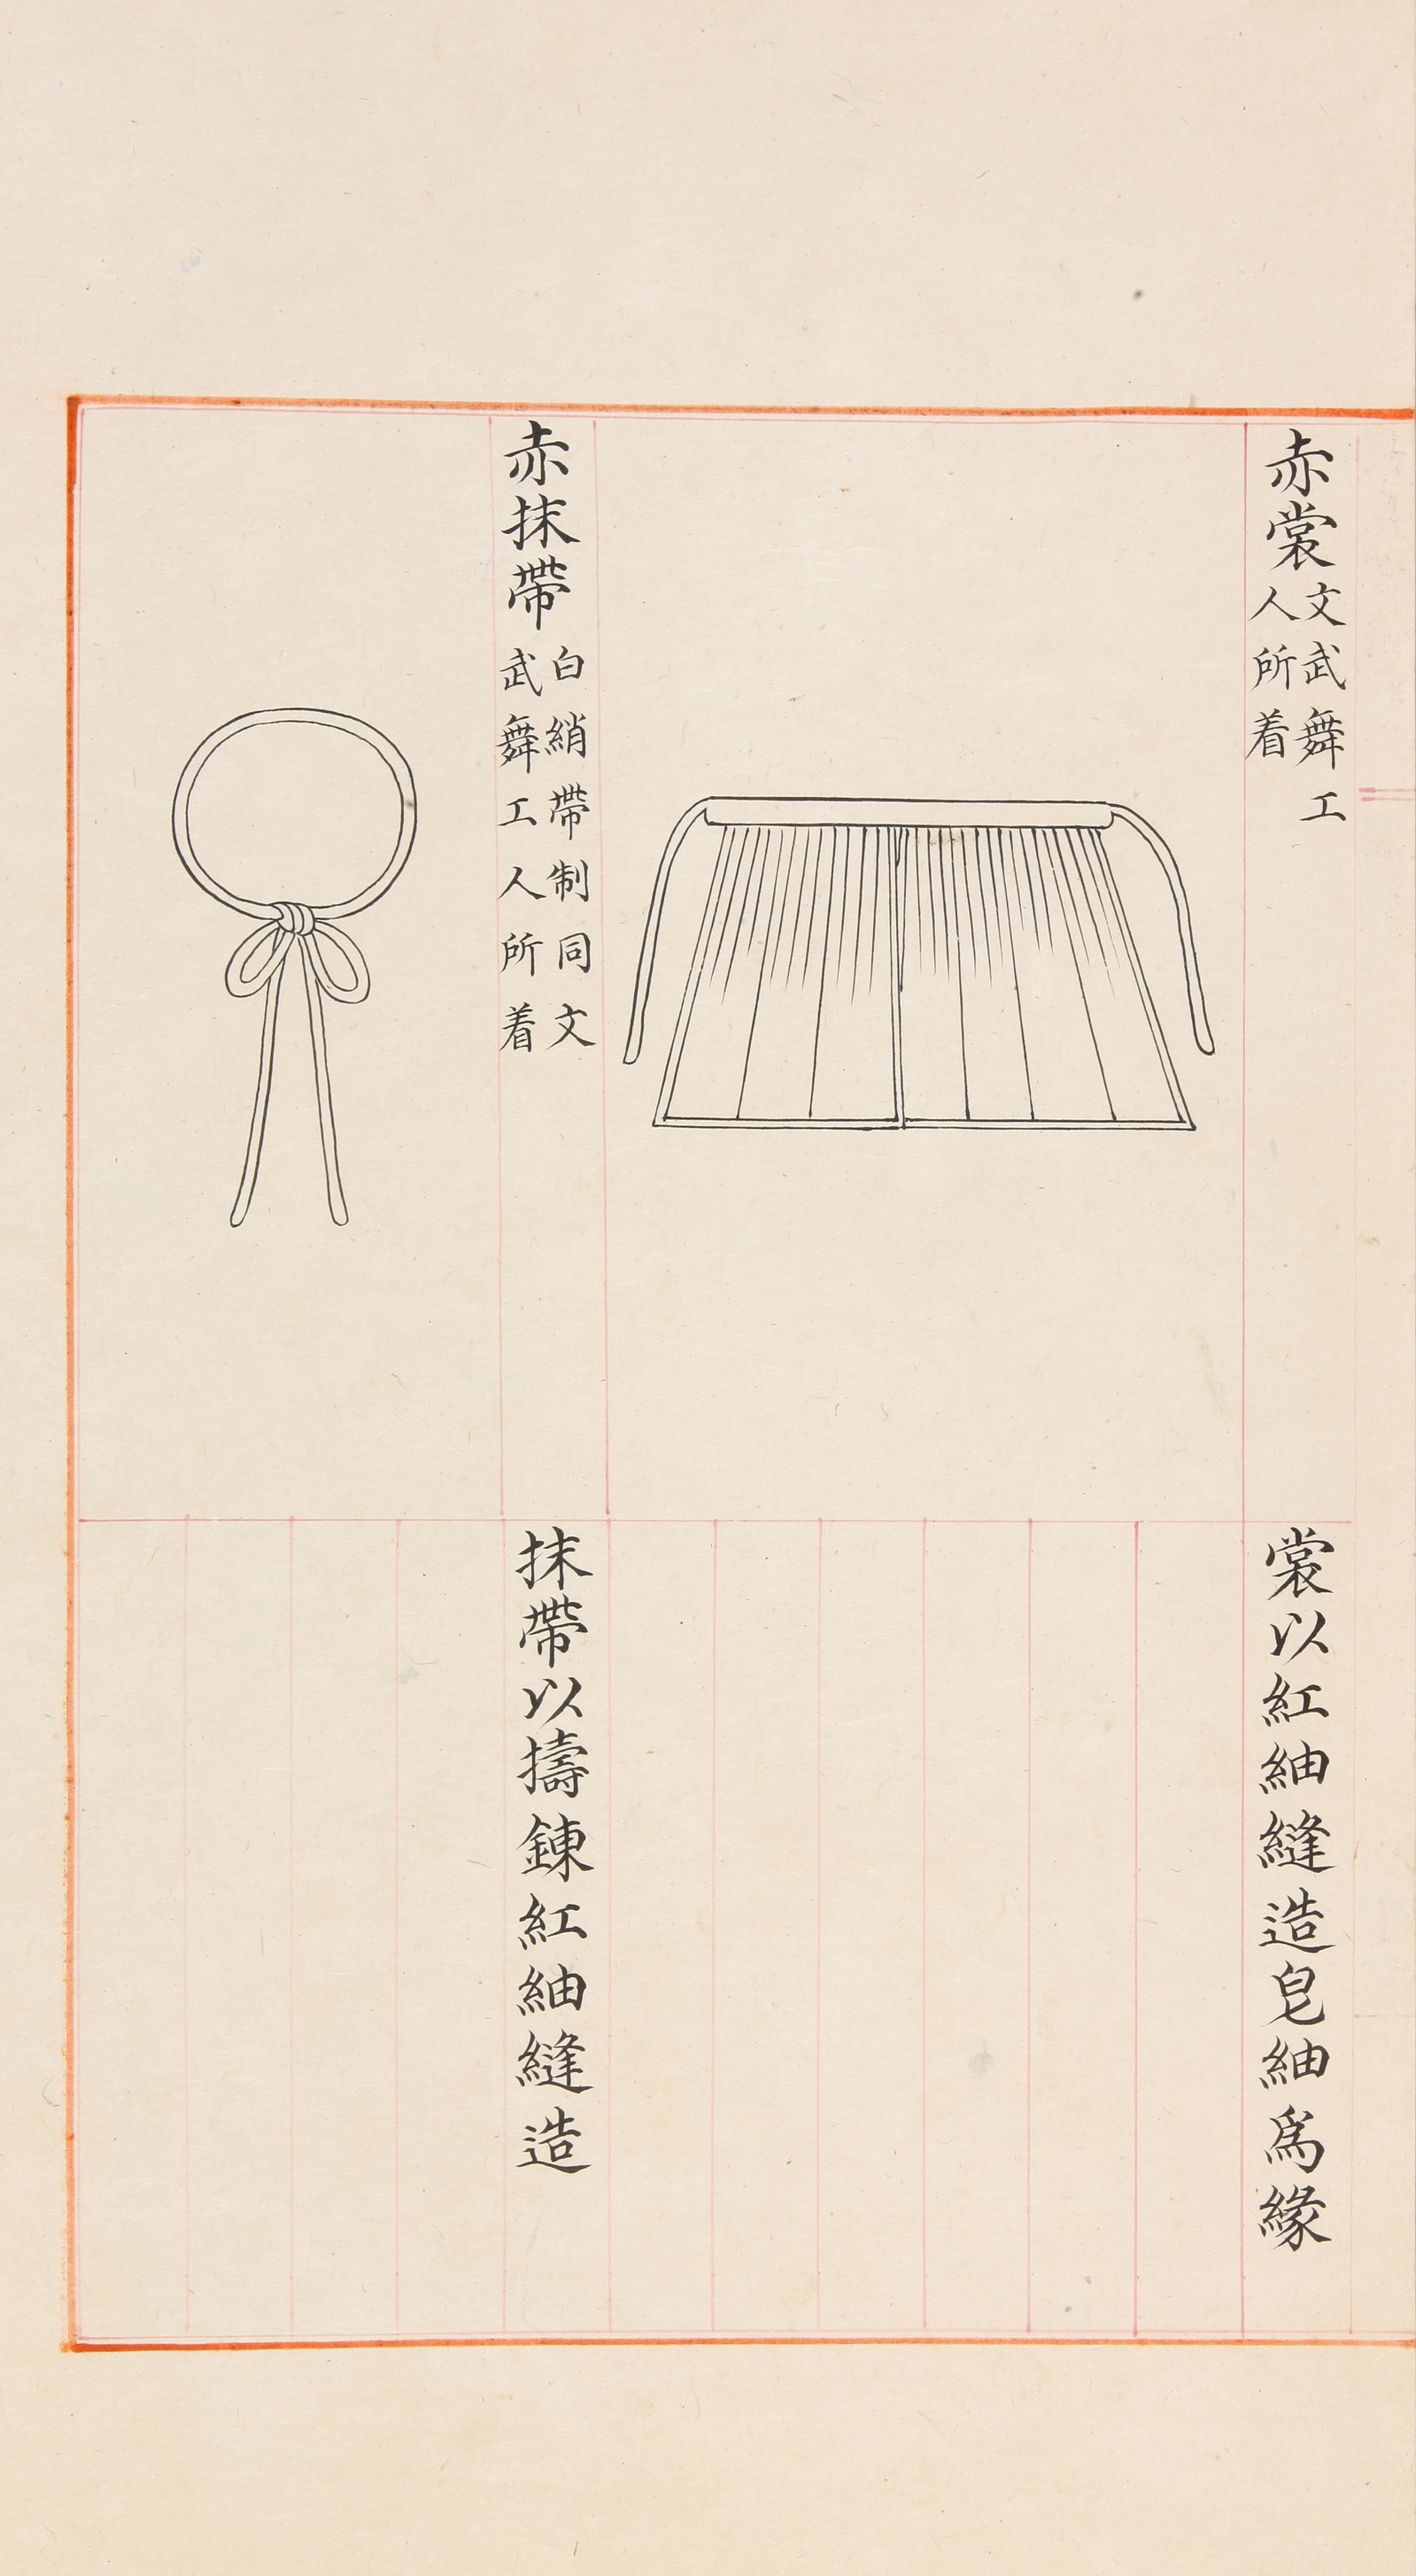 赤裳
文武舞工
人所着
裳以紅紬縫造皂紬爲緣
赤抹帶
白綃帶制同文
武舞工人所着
抹帶以擣鍊紅紬縫造